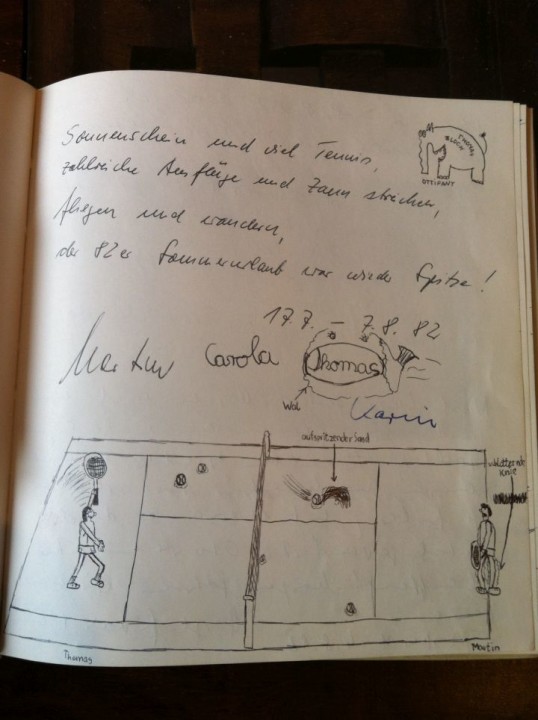 Sonnenschein und viel Tennis,
zahlreiche Ausflüge und Zaun streichen,
fliegen und wandern,
der 82er Sommerurlaub war wieder Spitze!
THOMAS
BLOCH
OTTIFANT
17.7. – 7.8.82
Martin Carola Thomas
Wal
Karin
aufspritzender Sand
schlotternde
Knie
Thomas
Martin